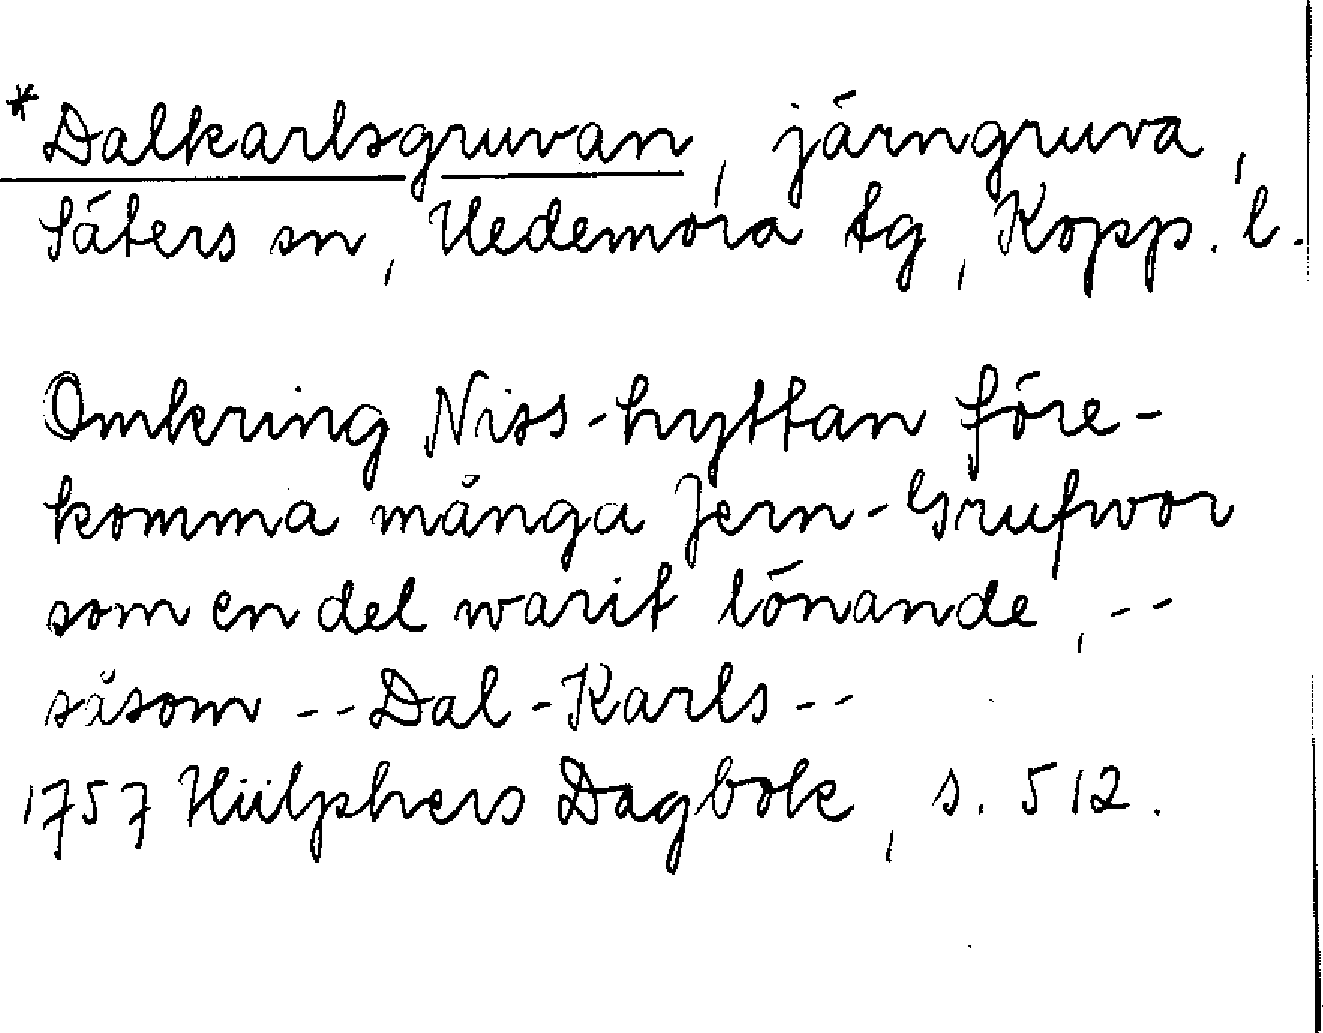 *Dalkarlsgruvan, järngruva,
Säters sn, Hedemora tg, Kopp. l.
Omkring Niss-hyttan före-
komma många Jern-Grufwor
som en del warit lönande, --
såsom -- Dal-Karls --
1757 Hülphers Dagbok, s. 512.